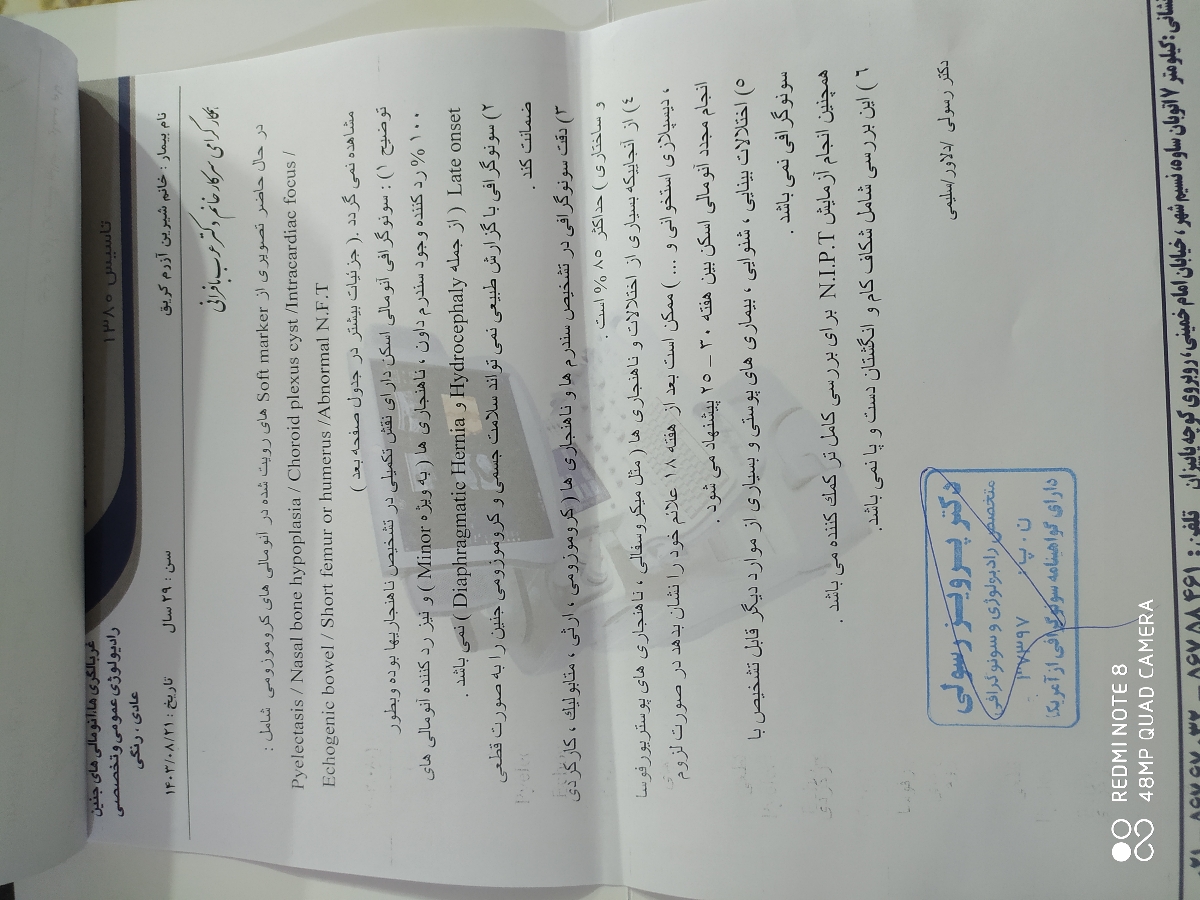 تاسیس ۱۳۸۰
غربالگری ها، آنومالی های جنین
رادیولوژی عمومی و تخصصی
عادی ، رنگی
نام بیمار : خانم شیرین آزرم کریق سن : ۲۹ سال تاریخ : ۱۴۰۳/۰۸/۲۱
همکار گرامی سرکار خانم دکتر عرب بافرانی
در حال حاضر تصویری از Soft marker های رویت شده در آنومالی های کروموزومی شامل :
Pyelectasis / Nasal bone hypoplasia / Choroid plexus cyst /Intracardiac focus /
Echogenic bowel / Short femur or humerus /Abnormal N.F.T
مشاهده نمی گردد .( جزئیات بیشتر در جدول صفحه بعد )
توضیح ۱) : سونوگرافی آنومالی اسکن دارای نقش تکمیلی در تشخیص ناهنجاریها بوده وبطور
۱۰۰ % رد کننده وجود سندرم داون ، ناهنجاری ها ( به ویژه Minor ) و نیز رد کننده آنومالی های
Late onset ( از جمله Hydrocephaly و Diaphragmatic Hernia ) نمی باشد .
۲) سونوگرافی با گزارش طبیعی نمی تواند سلامت جسمی و کروموزومی جنین را به صورت قطعی
ضمانت کند .
۳) دقت سونوگرافی در تشخیص سندرم ها و ناهنجاری ها ( کروموزومی ، ارثی ، متابولیک ، کارکردی
و ساختاری ) حداکثر ۸۵ % است .
٤) از آنجاییکه بسیاری از اختلالات و ناهنجاری ها ( مثل میکروسفالی ، ناهنجاری های پوستریورفوسا
، دیسپلازی استخوانی و ... ) ممکن است بعد از هفته ۱۸ علائم خود را نشان بدهد در صورت لزوم
انجام مجدد آنومالی اسکن بین هفته ۳۰ – ۲۵ پیشنهاد می شود .
۵) اختلالات بینایی ، شنوایی ، بیماری های پوستی و بسیاری از موارد دیگر قابل تشخیص با
سونوگرافی نمی باشد .
همچنین انجام آزمایش N.I.P.T برای بررسی کامل تر کمک کننده می باشد .
٦ ) این بررسی شامل شکاف کام و انگشتان دست و پا نمی باشد .
دکتر رسولی /دلاور/سلیمی
دکتر پرویز رسولی
متخصص رادیولوژی و سونوگرافی
ن . پ . ۳۷۳۹۷
دارای گواهینامه سونوگرافی از آمریکا
نشانی : کیلومتر ۷ اتوبان ساوه، نسیم شهر ، خیابان امام خمینی، روبروی کوچه یاسران تلفن :
REDMI NOTE 8
48MP QUAD CAMERA